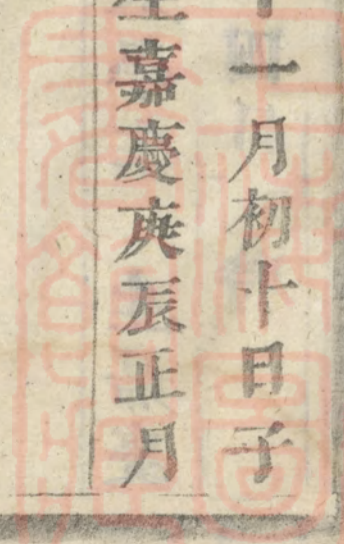 十一月初十日子
生嘉慶庚辰正月